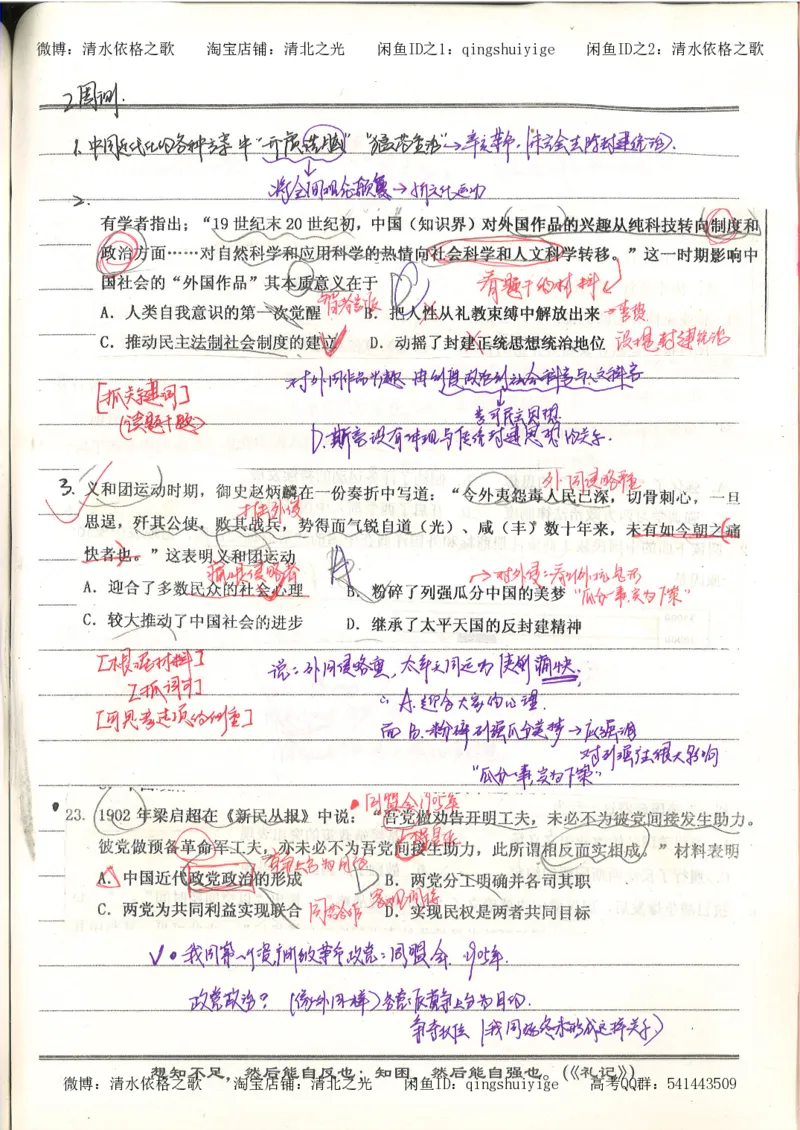 微博：清水依格之歌 淘宝店铺：清北之光 闲鱼ID之1：qingshuiyige 闲鱼ID之2：清水依格之歌
2周测.
1.中国近代化的各种方案中"开质洗脑" "猛荡合治"→辛亥革命.(未完全去除封建统治).
→新文化运动
2.
有学者指出；“19 世纪末 20 世纪初，中国（知识界）对外国作品的兴趣从纯科技转向制度和
政治方面……对自然科学和应用科学的热情向社会科学和人文科学转移。”这一时期影响中
国社会的“外国作品”其本质意义在于
看题干的材料
A．人类自我意识的第一次觉醒 B．把人性从礼教束缚中解放出来
C．推动民主法制社会制度的建立 D．动摇了封建正统思想统治地位
[抓关键词]
(读题干题)
D.斯音没有体现与传统封建思想的关系.
3. 义和团运动时期，御史赵炳麟在一份奏折中写道：“令外夷怨毒人民已深，切骨刺心，一旦
外国侵略强
打击外侵
思逞，歼其公使，败其战兵，势得而气锐自道（光）、咸（丰）数十年来，未有如今朝之痛
快者也。”这表明义和团运动
A
痛恨侵略者
A．迎合了多数民众的社会心理 B．粉碎了列强瓜分中国的美梦
"瓜分一事实为下策"
C．较大推动了中国社会的进步 D．继承了太平天国的反封建精神
[根据材料]
[抓词句]
[可思考选项的侧重]
∴A.迎合大家的心理.
而B.粉碎列强瓜分美梦→应强调
对列强造很大影响
"瓜分一事实为下策"
同盟会1905年
23. 1902 年梁启超在《新民丛报》中说：“吾党做劝告开明工夫，未必不为彼党间接发生助力。
彼党做预备革命军工夫，亦未必不为吾党间接生助力，此所谓相反而实相成。”材料表明
A．中国近代政党政治的形成 B．两党分工明确并各司其职
C．两党为共同利益实现联合 D．实现民权是两者共同目标
√•我国第一个资产阶级革命政党：同盟会.1905年.
政党政治？(像外国那样)各党派竞争上台为目的.
想知不足，然后能自反也；知困，然后能自强也。(《礼记》)
微博：清水依格之歌 淘宝店铺：清北之光 闲鱼ID：qingshuiyige 高考QQ群：541443509